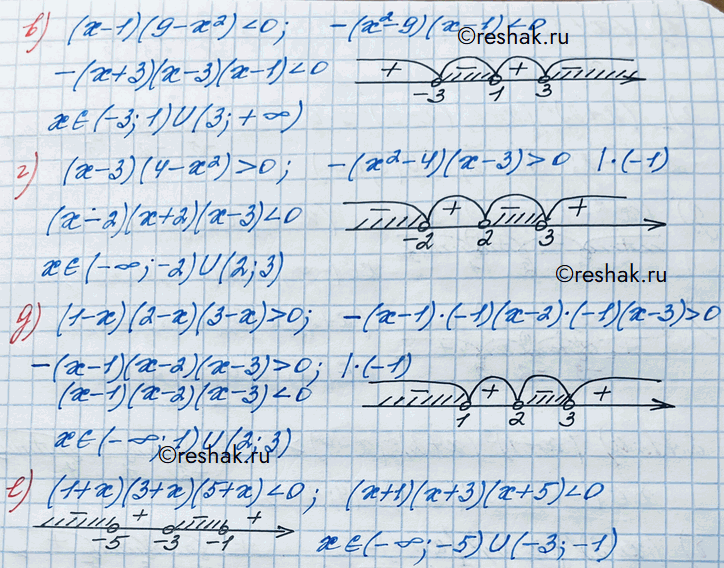 в) (x-1)(9-x²)<0; -(x²-9)(x-1)<0
©reshak.ru
-(x+3)(x-3)(x-1)<0 + - + -
-3 1 3
x∈(-3; 1)∪(3; +∞)
г) (x-3)(4-x²)>0; -(x²-4)(x-3)>0 |·(-1)
(x-2)(x+2)(x-3)<0 - + - +
-2 2 3
x∈(-∞; -2)∪(2; 3)
©reshak.ru
д) (1-x)(2-x)(3-x)>0; -(x-1)·(-1)(x-2)·(-1)(x-3)>0
-(x-1)(x-2)(x-3)>0; |·(-1)
(x-1)(x-2)(x-3)<0 - + - +
1 2 3
x∈(-∞; 1)∪(2; 3)
©reshak.ru
е) (1+x)(3+x)(5+x)<0; (x+1)(x+3)(x+5)<0
- + - +
-5 -3 -1 x∈(-∞; -5)∪(-3; -1)